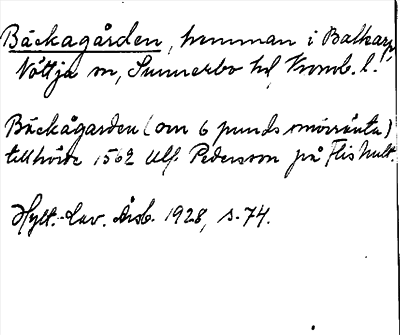 Bäckagården, hemman i Balkarp,
Nöttja sn, Sunnerbo hd, Kronob. l.
Bäckagården (om 6 punds smörränta)
tillhörde 1562 Ulf Pedersson på Flishult.
Hylt.-Cav. Årsb. 1928, s. 74.